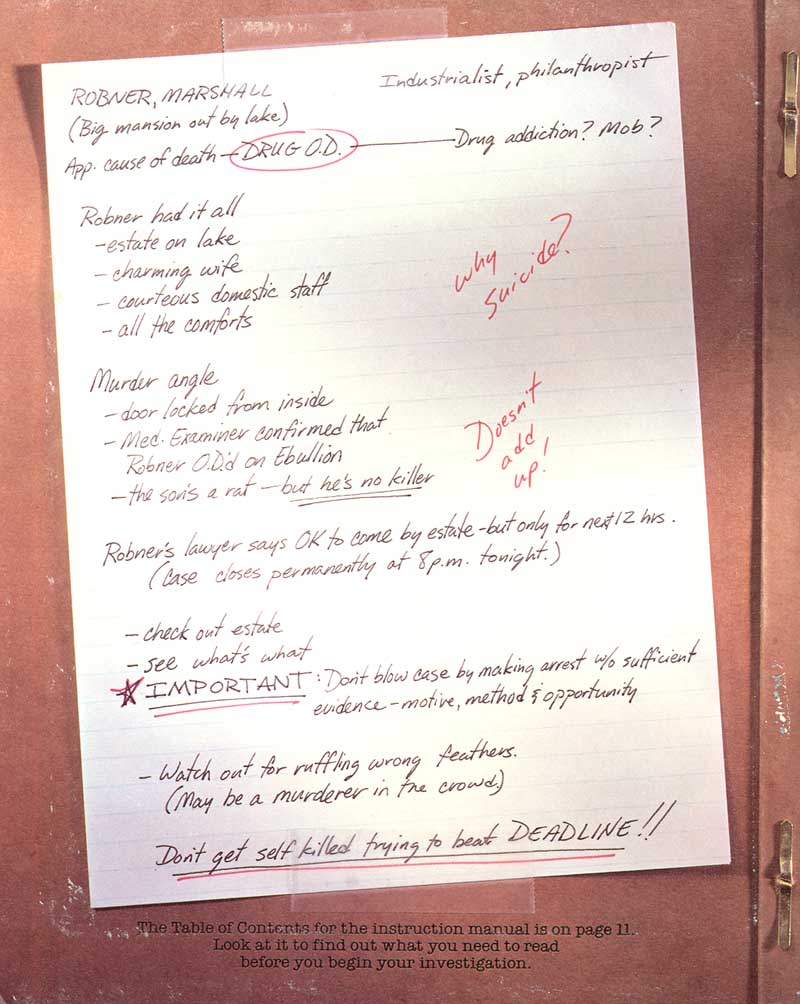 ROBNER, MARSHALL
Industrialist, philanthropist
(Big mansion out by lake.)
App. cause of death – DRUG O.D. — Drug addiction? Mob?
Robner had it all
– estate on lake
– charming wife
– courteous domestic staff
– all the comforts
Why
Suicide?
Murder angle
– door locked from inside
– Med. Examiner confirmed that
Robner O.D.'d on Ebullion
– the son's a rat – but he's no killer
Doesn't
add
up!
Robner's lawyer says OK to come by estate – but only for next 12 hrs.
(Case closes permanently at 8 p.m. tonight.)
– check out estate
– see what's what
IMPORTANT: Don't blow case by making arrest w/o sufficient
evidence – motive, method & opportunity
– Watch out for ruffling wrong feathers.
(May be a murderer in the crowd.)
Don't get self killed trying to beat DEADLINE!!
The Table of Contents for the instruction manual is on page 11.
Look at it to find out what you need to read
before you begin your investigation.